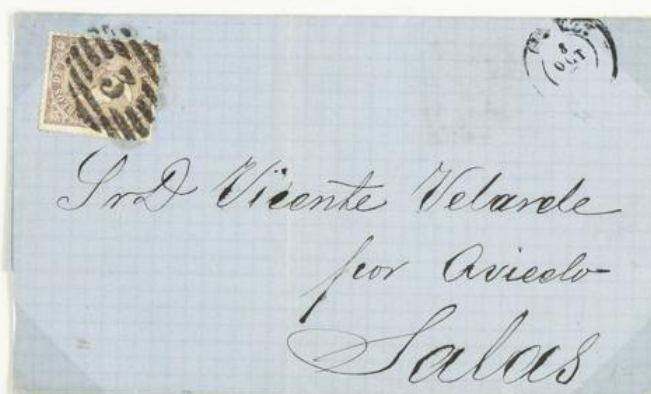 8
OCT
5
Sr D Vicente Velarde
por Oviedo
Salas